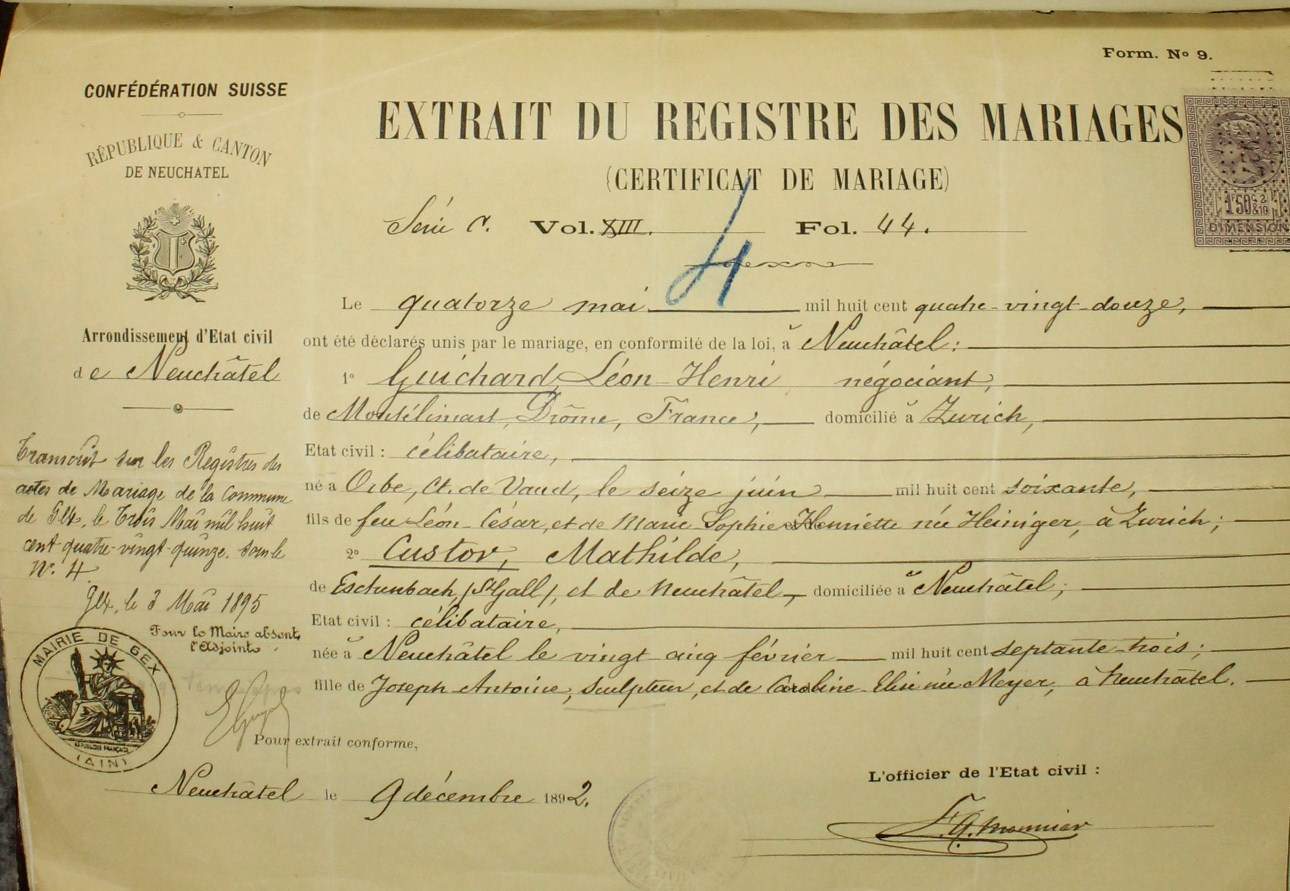 Form. Nº 9.
CONFÉDÉRATION SUISSE
RÉPUBLIQUE & CANTON
DE NEUCHATEL
EXTRAIT DU REGISTRE DES MARIAGES
(CERTIFICAT DE MARIAGE)
Série C. Vol. XIII. Fol. 44.
4
1F50
DIMENSION
Le quatorze mai mil huit cent quatre-vingt-douze,
ont été déclarés unis par le mariage, en conformité de la loi, à Neuchâtel:
1º Guichard, Léon-Henri négociant,
de Montélimart, Drôme, France, domicilié à Zurich,
Etat civil : célibataire,
né à Orbe, Ct. de Vaud, le seize juin mil huit cent soixante,
fils de feu Léon-César, et de Marie Sophie Henriette née Heiniger, à Zurich;
2º Custor, Mathilde,
de Eschenbach, (St Gall), et de Neuchâtel, domiciliée à Neuchâtel;
Etat civil : célibataire,
née à Neuchâtel le vingt cinq février mil huit cent septante-trois;
fille de Joseph-Antoine, sculpteur, et de Caroline-Elise née Meyer, à Neuchâtel.
Arrondissement d'Etat civil
de Neuchâtel
Transcrit sur les Registres des
actes de Mariage de la Commune
de Gex, le Trois Mai mil huit
cent quatre-vingt-quinze. sous le
Nº. 4
Gex, le 3 Mai 1895
Pour le Maire absent,
l'Adjoint
MAIRIE DE GEX
RÉPUBLIQUE FRANÇAISE
(AIN)
Pour extrait conforme,
Neuchâtel le 9 décembre 1892.
L'officier de l'Etat civil :